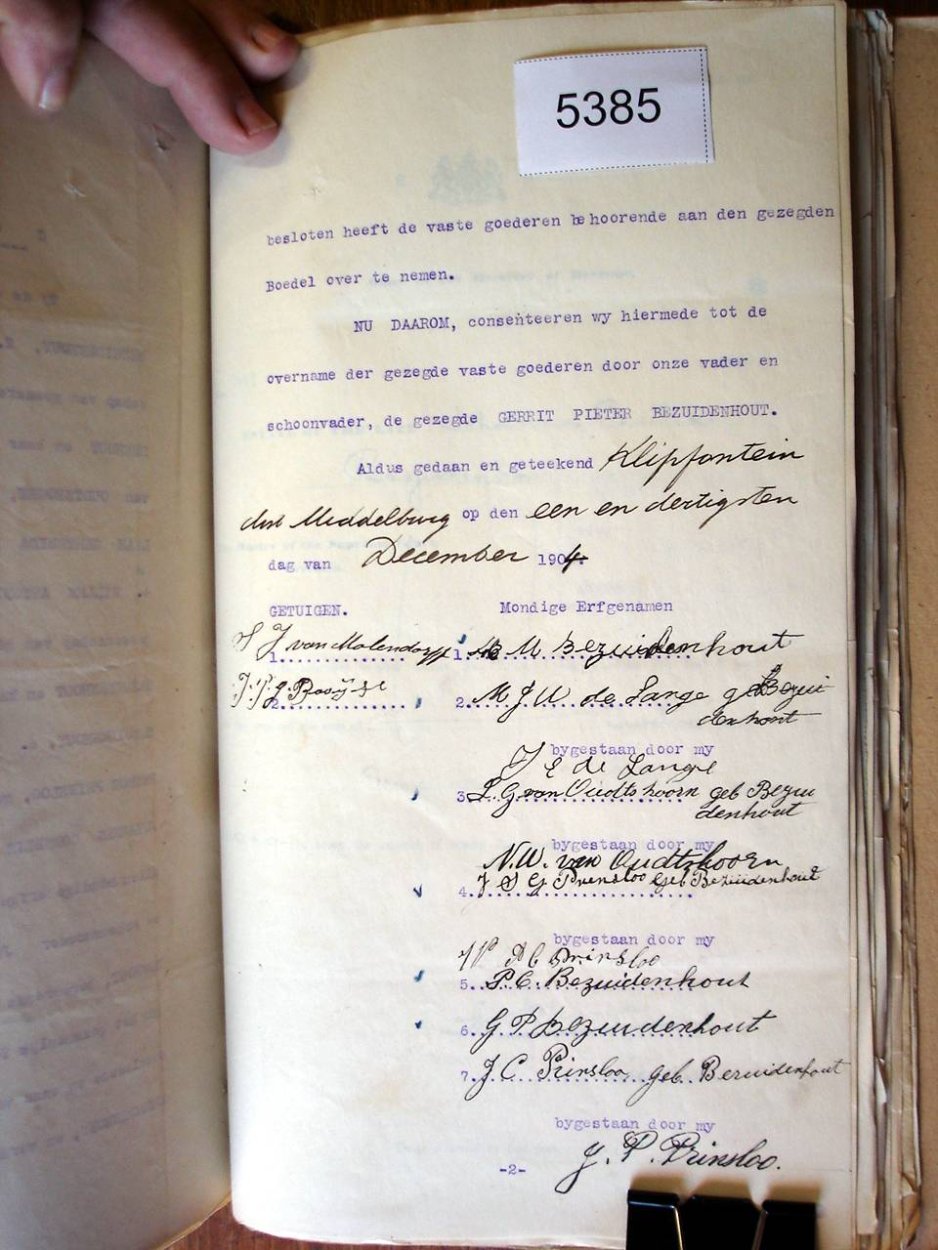 5385
besloten heeft de vaste goederen behoorende aan den gezegden
Boedel over te nemen.
NU DAAROM, consenteeren wy hiermede tot de
overname der gezegde vaste goederen door onze vader en
schoonvader, de gezegde GERRIT PIETER BEZUIDENHOUT.
Aldus gedaan en geteekend Klipfontein
dist Middelburg op den een en dertigsten
dag van December 1904.
GETUIGEN. Mondige Erfgenamen
1. J van Molendorff 1. M Bezuidenhout
2. Booyse 2. M J W de Lange geb Bezui
denhout
bygestaan door my
J E de Lange
3. L G van Oudtshoorn geb Bezui
denhout
bygestaan door my
N.W. van Oudtshoorn
4. J S G Prinsloo Geb Bezuidenhout
bygestaan door my
Prinsloo
5. P.C. Bezuidenhout
6. G P Bezuidenhout
7. J C Prinsloo geb. Bezuidenhout
bygestaan door my
J. P. Prinsloo.
-2-